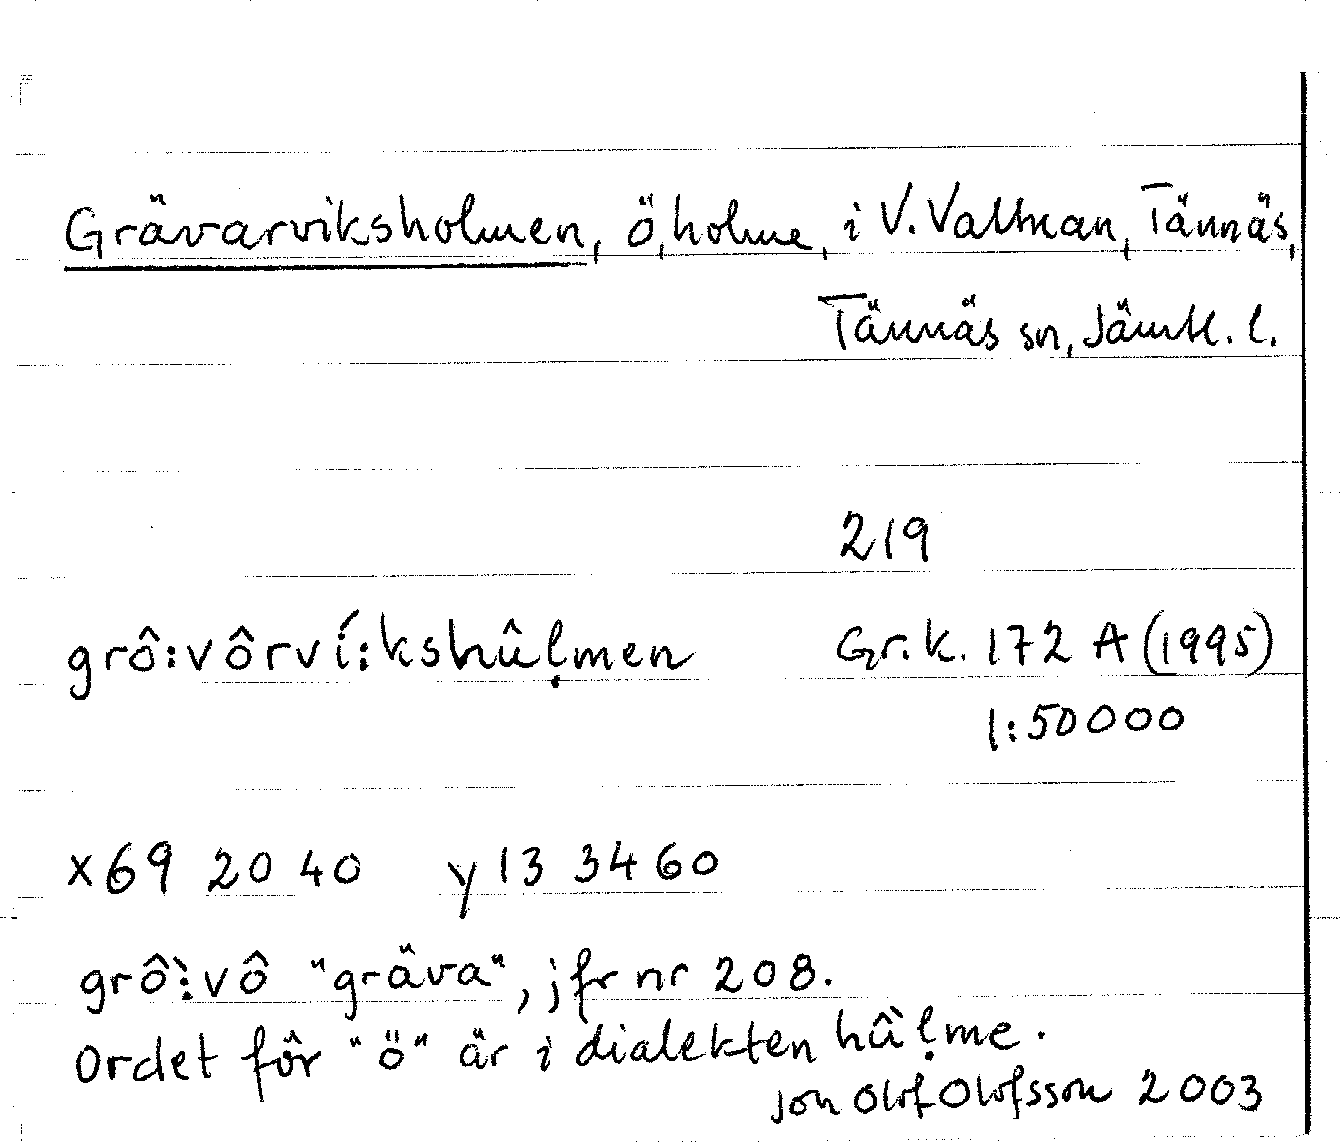 Grävarviksholmen, ö, holme, i V. Valtman, Tännäs,
Tännäs sn, Jämtl. l.
219
grô:vôrví:kshûḷmen Gr.k. 172 A (1995)
1:50000
x69 20 40 y13 34 60
grồ:vô "gräva", jfr nr 208.
Ordet för "ö" är i dialekten hû̀ḷme.
Jon Olof Olofsson 2003